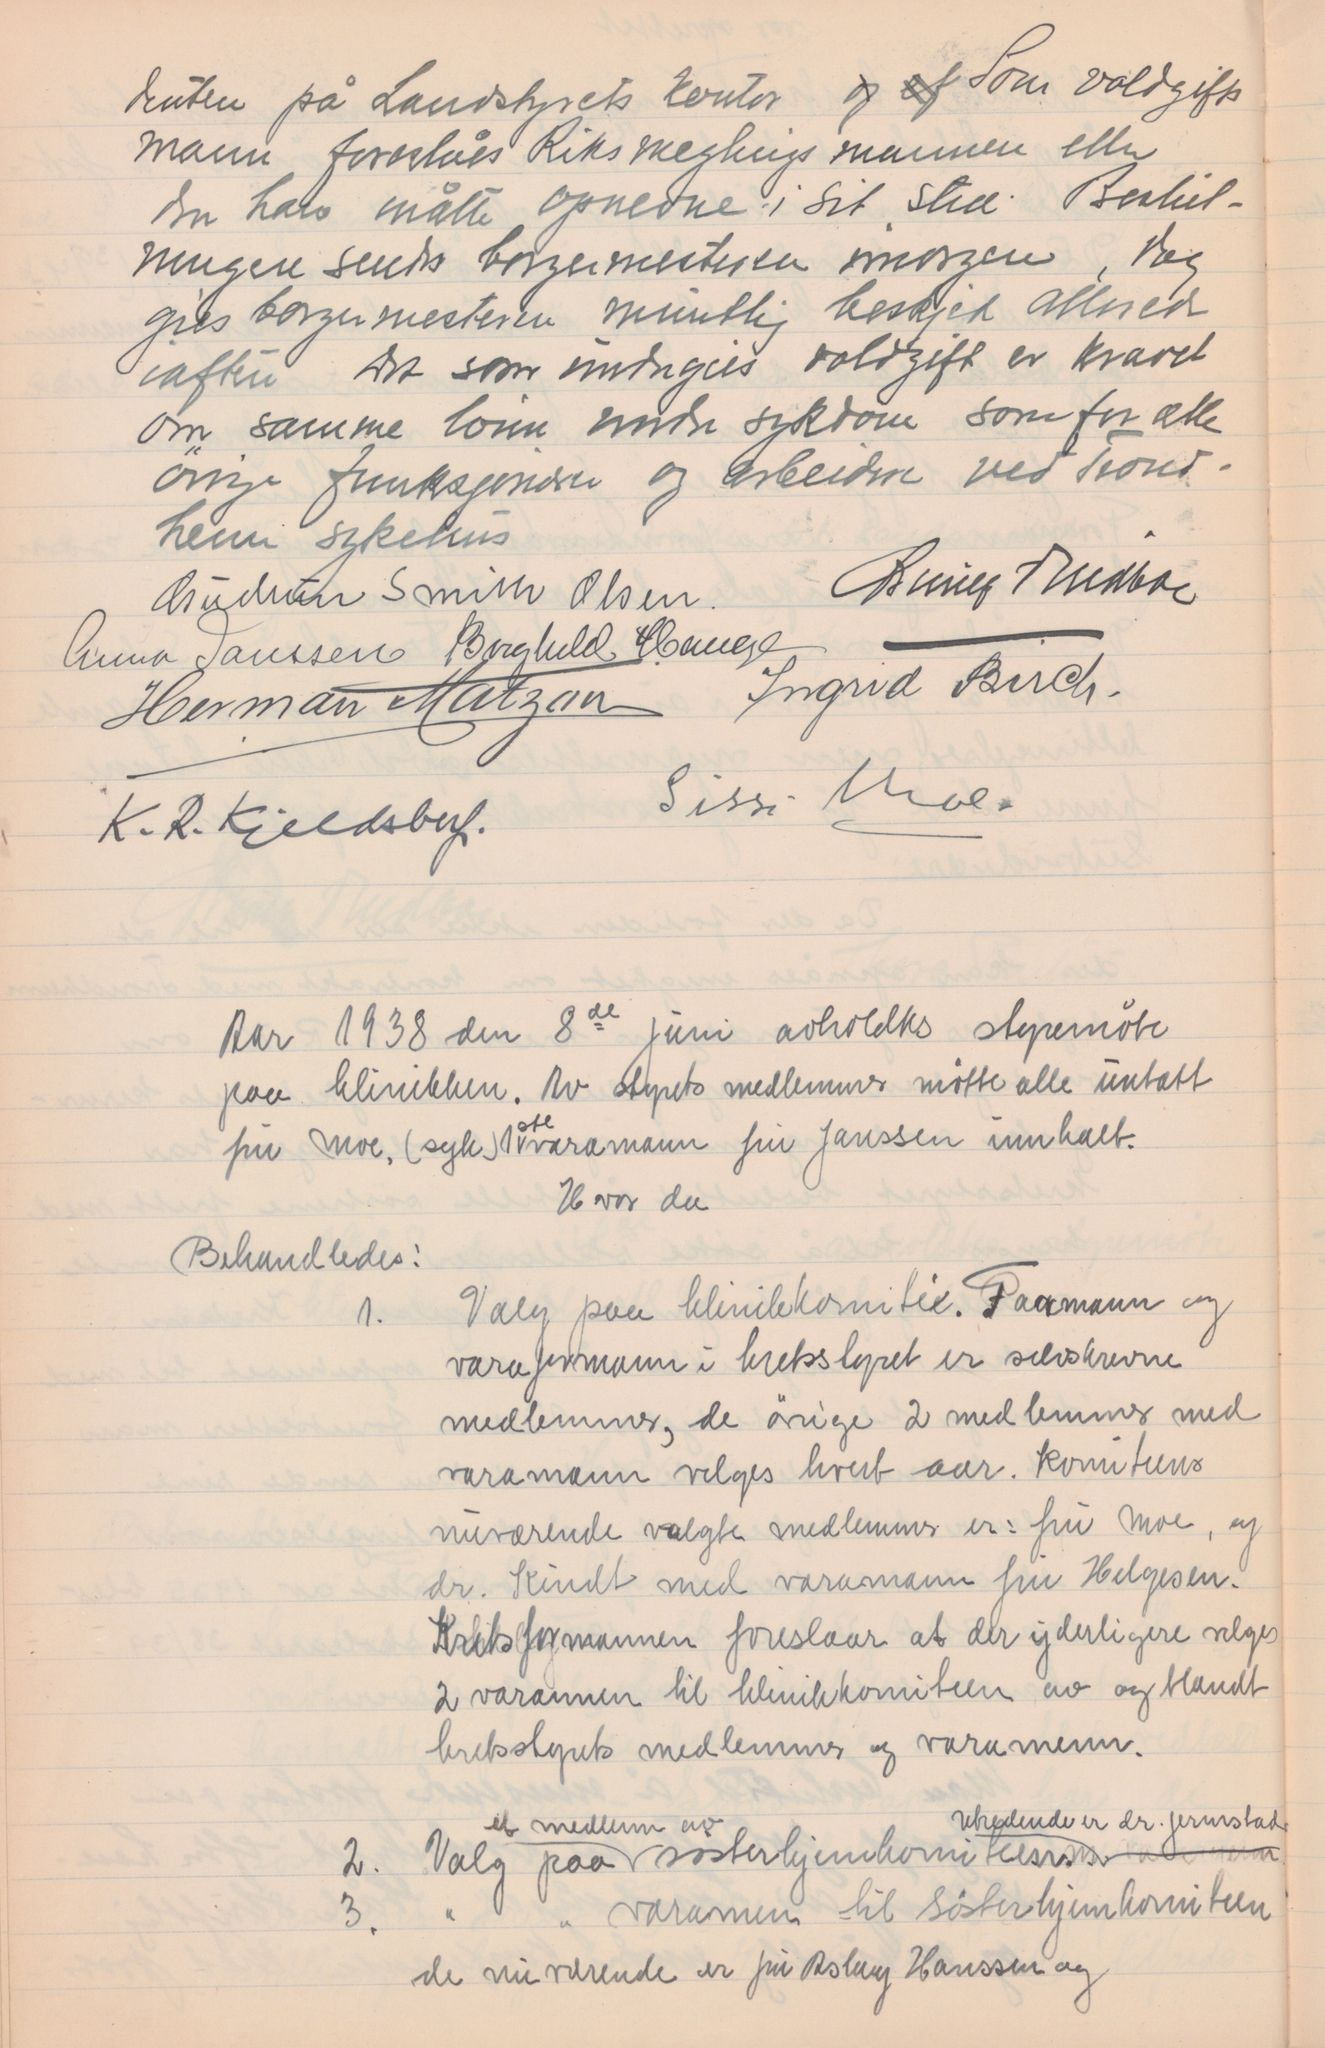 denten på Landstyrets kontor og Som voldgifts
mann foreslåes Riksmeglingsmannen eller
den han måtte opnevne i sit sted. Beslut-
ningen sendes borgermesteren imorgen, dog
gies borgermesteren muntlig beskjed allerede
iaften Det som undergies voldgift er kravet
om samme lönn under sykdom som for alle
övrige funksjonærer og arbeidere ved Trond-
heim sykehus
Gudrun Smith Olsen.
Anna Janssen Borghild Hauge
Herman Matzon Ingrid Birch.
K. R. Kjeldsberg. Sissi Moe.
Aar 1938 den 8de juni avholdtes styremöte
paa klinikken. Av styrets medlemmer mötte alle untatt
fru Moe, (syk) 1ste varamann fru Janssen innkalt.
Hvor da
Behandledes:
1. Valg paa klinikkomité. Formann og
varaformann i kretsstyret er selvskrevne
medlemmer, de övrige 2 medlemmer med
varamann velges hvert aar. Komiteens
nuværende valgte medlemmer er: fru Moe, og
dr. Kindt med varamann fru Helgesen.
Kretsformannen foreslaar at der yderligere velges
2 varamen til klinikkomiteen av og blandt
kretsstyrets medlemmer og varamenn.
et medlem av uttredende er dr. Jermstad
2. Valg paa sösterhjemkomiteen
3. " " varamen til Sösterhjemkomiteen
de nuværende er fru Aslaug Hanssen og